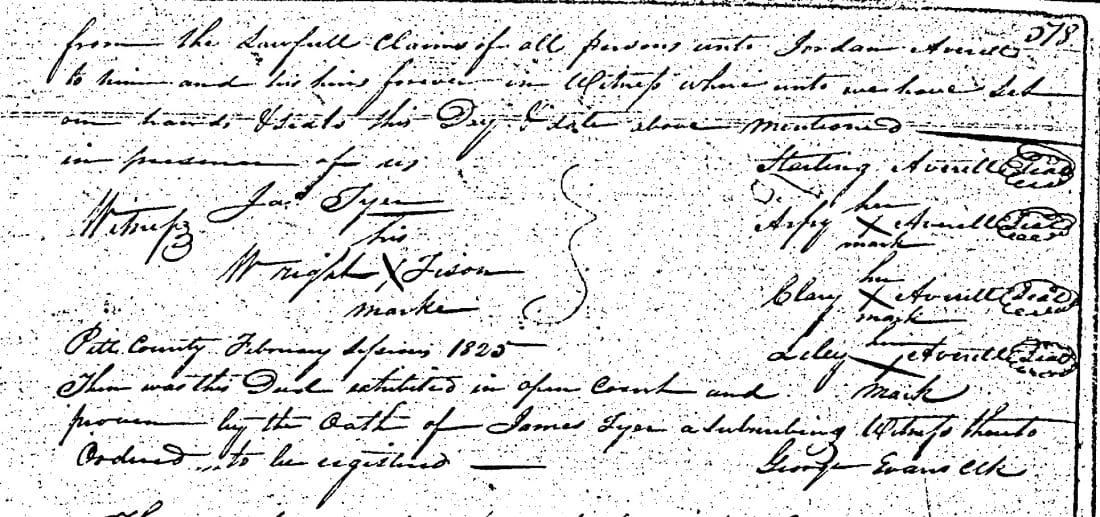 578
from the Lawfull Claims of all persons unto Jordan Averitt
to him and his heirs forever in Witness where unto we have set
our hands & seals this Day & date above mentioned
in presence of us
Starling Averitt Seal
Witness
Jas Tyer
Wright his X mark Tison
her X mark Averitt Seal
Clary her X mark Averitt Seal
her X mark Averitt Seal
Pitt County February Sessions 1825
Then was this Deed exhibited in open Court and
proven by the Oath of James Tyer a subscribing Witness thereto
Ordered to be registered
George Evans Clk